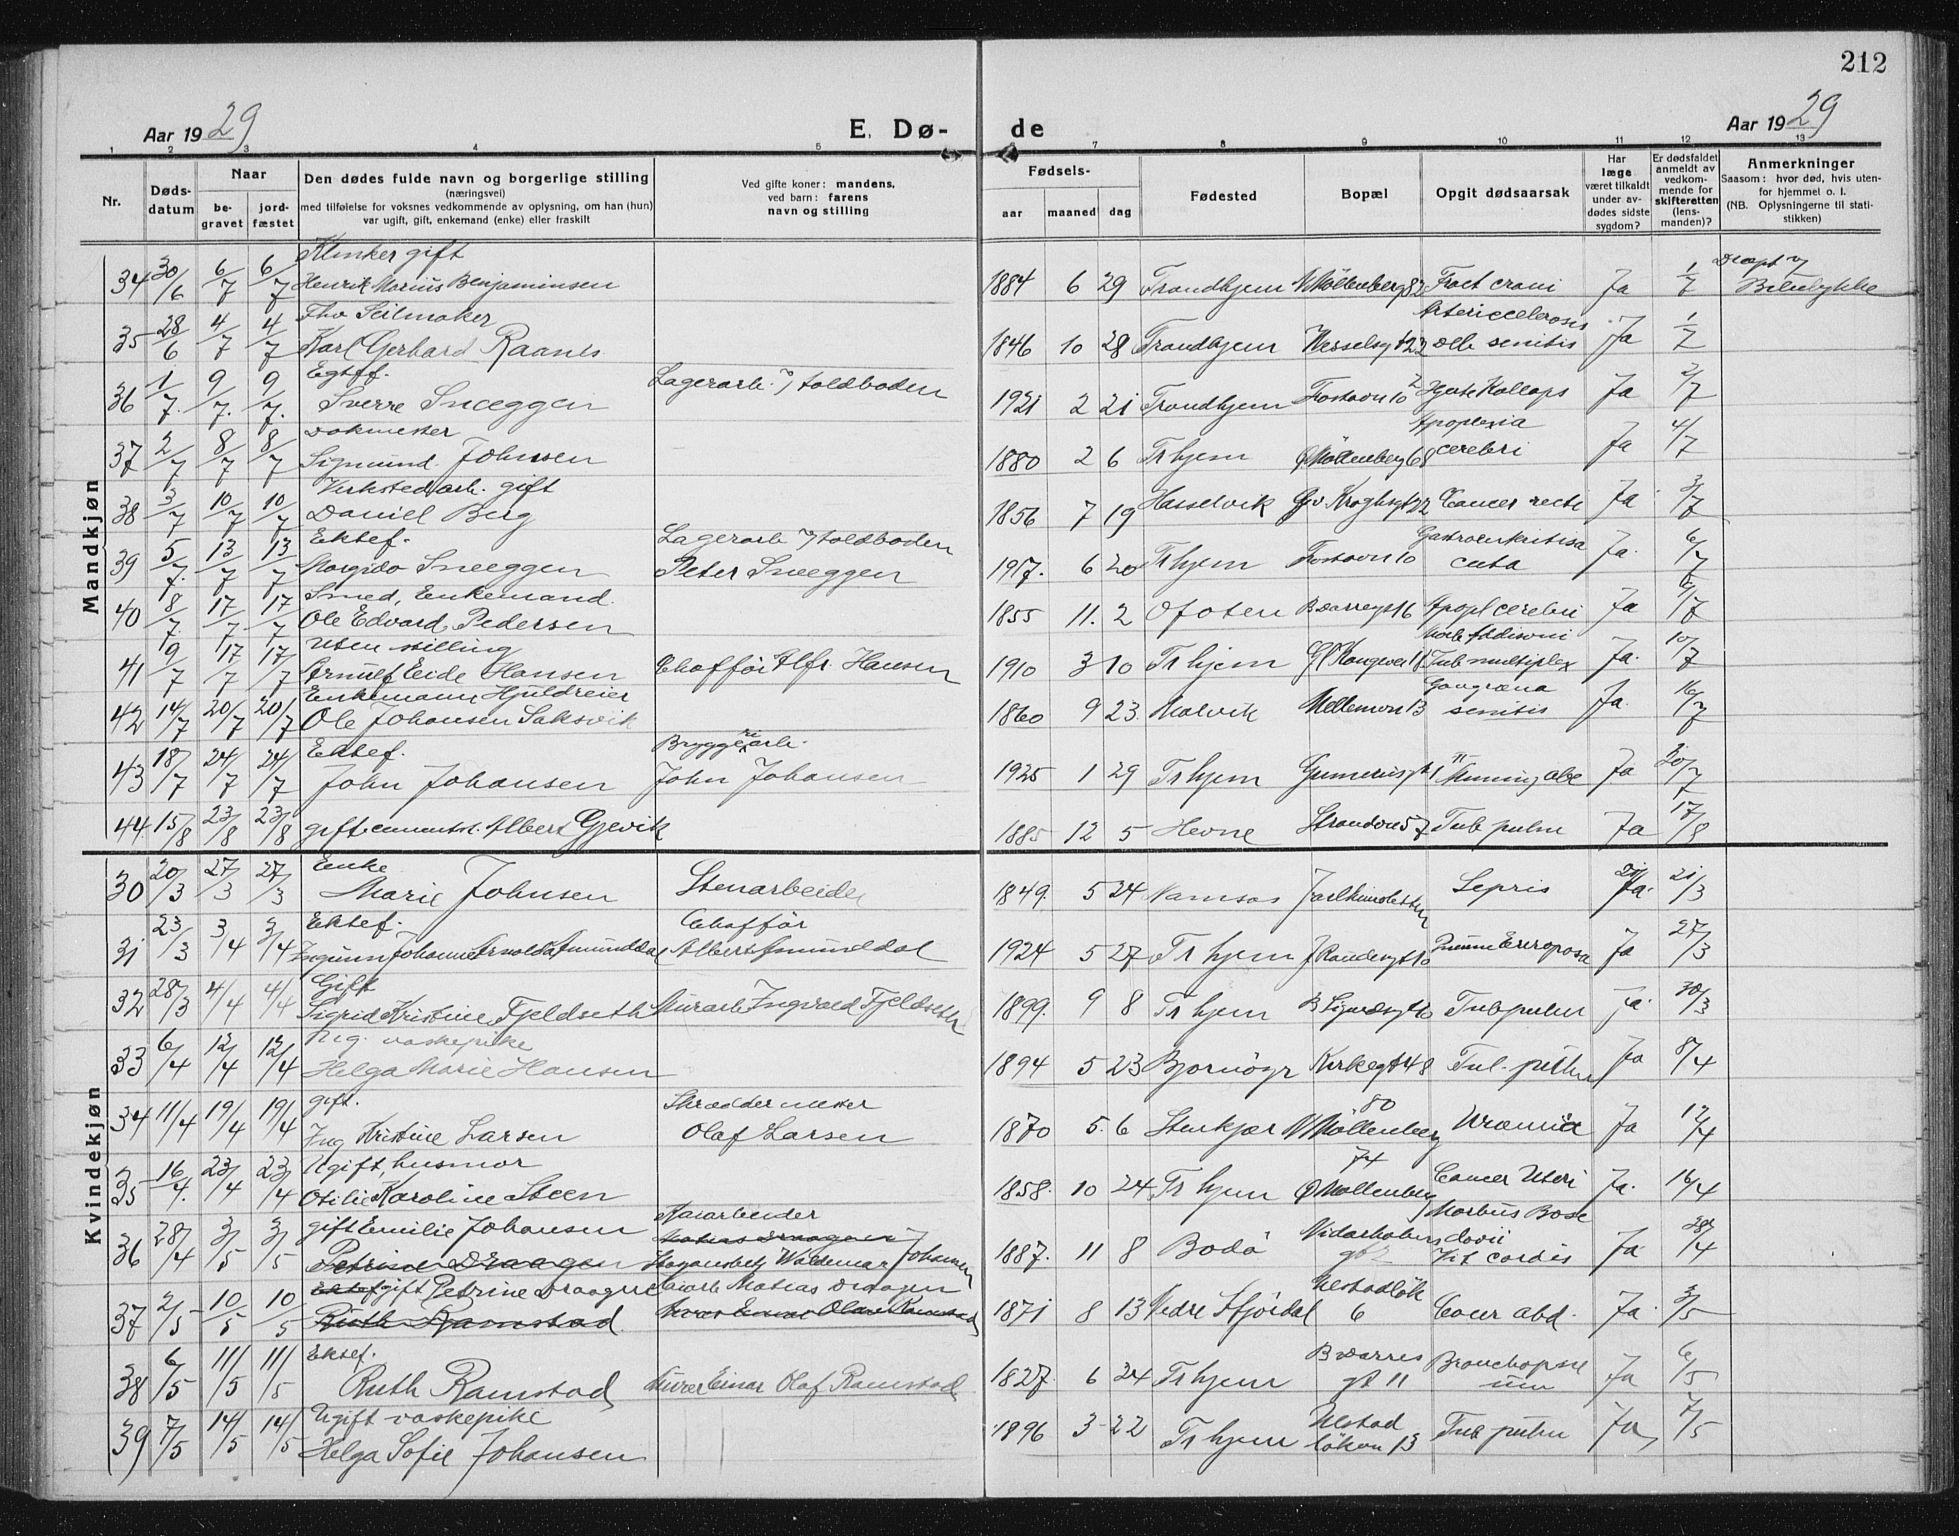 212
Aar 1929
E. Dø-
de
Aar 1929
1 2 3 4 5 6 7 8 9 10 11 12 13
Nr.
Døds-
datum
Naar
be-
gravet
jord-
fæstet
Den dødes fulde navn og borgerlige stilling
(næringsvei)
med tilføielse for voksnes vedkommende av oplysning, om han (hun)
var ugift, gift, enkemand (enke) eller fraskilt
Ved gifte koner: mandens,
ved barn: farens
navn og stilling
Fødsels-
aar
maaned
dag
Fødested
Bopæl
Opgit dødsaarsak
Har
læge
været tilkaldt
under av-
dødes sidste
sygdom?
Er dødsfaldet
anmeldt av
vedkom-
mende for
skifteretten
(lens-
manden)?
Anmerkninger
Saasom: hvor død, hvis uten-
for hjemmet o. l.
(NB. Oplysningerne til stati-
stikken)
Mandkjøn
Klinker gift
34 30/6 6/7 6/7 Henrik Marius Benjaminsen 1884 6 29 Trondhjem Möllenberg 82 Fract crani Ja 1/7 Dræpt v/ Bilulykke
Fhv Seilmaker Artericclerosis
35 28/6 4/7 4/7 Karl Gerhard Raanes 1846 10 28 Trondhjem Wesselsgt 22 senitis Ja 1/7
Egtef. Lagerarb. v/ toldboden
36 1/7 9/7 9/7 Sverre Sneeggen 1921 2 21 Trondhjem 10 Hjerte Kollaps Ja 2/7
Dokmester Apoplexia
37 2/7 8/7 8/7 Sigmund Johnsen 1880 2 6 Trhjem Ø Möllenberg 68 cerebri Ja 4/7
Verkstedarb. gift
38 3/7 10/7 10/7 Daniel Berg 1856 7 19 Hasselvik Gv Kroghsgt 22 Cancer recti Ja 3/7
Ektef. Lagerarb v/ toldboden
39 5/7 13/7 13/7 Margido Sneeggen Peter Sneeggen 1917 6 20 Trhjem 10 cuta Ja 6/7
Smed, Enkemand
40 8/7 17/7 17/7 Ole Edvard Pedersen 1855 11 2 Ofoten 16 Apopl cerebri Ja
Uten stilling Morb Addisoni
41 9/7 17/7 17/7 Arnulf Eide Hansen Chafför Alfr. Hansen 1910 3 10 Trhjem Gl Kongevei 18 Tub multiplex Ja 10/7
Enkemann Hjuldreier Gangræna
42 14/7 20/7 20/7 Ole Johansen Saksvik 1860 9 23 Malvik Mellemon 13 senitis Ja 16/7
Ektef. Bryggeriarb.
43 18/7 24/7 24/7 John Johansen John Johansen 1925 1 29 Trhjem Ja 20/7
44 15/8 23/8 23/8 gift cementst. Albert Gjevik 1885 12 5 Hevne Strandvei 57 Tub pulm Ja 17/8
Kvindekjøn
Enke
30 20/3 27/3 27/3 Marie Johnsen Stenarbeider 1849 5 24 Namsos Sepris Ja 21/3
Ektef. Chafför
31 23/3 3/4 3/4 Ingunn Johanne Arnolda Amunddal Albert Amunddal 1924 5 27 Trhjem 10 Ja 27/3
Gift
32 28/3 4/4 4/4 Sigrid Kristine Fjeldseth Murarb Ingvald Fjeldseth 1899 9 8 Trhjem Tub pulm Ja 30/3
Ug. vaskepike
33 6/4 12/4 12/4 Helga Marie Hansen 1894 5 23 Bjornöyr Kirkegt 48 Tub. pulm Ja 8/4
gift. Skræddermester 80
34 11/4 19/4 19/4 Ing Kristine Larsen Olaf Larsen 1870 5 6 Stenkjær Möllenberg Uræmia Ja 12/4
Ugift, husmor 74
35 16/4 23/4 23/4 Otilie Karoline Steen 1858 10 24 Trhjem Ø Möllenberg Cancer Uteri Ja 16/4
gift Emilie Johansen Kaiarbeider Morbus Base
36 28/4 3/5 3/5 Petrine Draagen Waldemar Johansen 1887 11 8 Bodö dovii Vit cordis Ja
Ektef gift Petrine Draagen Matias Draagen
37 2/5 10/5 10/5 Ruth Ramstad 1871 8 13 Nedre Stjördal 6 Cancer abd. Ja 3/5
Ektef.
38 6/5 11/5 11/5 Ruth Ramstad Murer Einar Olaf Ramstad 1827 6 24 Trhjem gt 11 Ja 6/5
Ugift vaskepike
39 7/5 14/5 14/5 Helga Sofie Johansen 1896 3 22 Trhjem 13 Tub pulm Ja 7/5